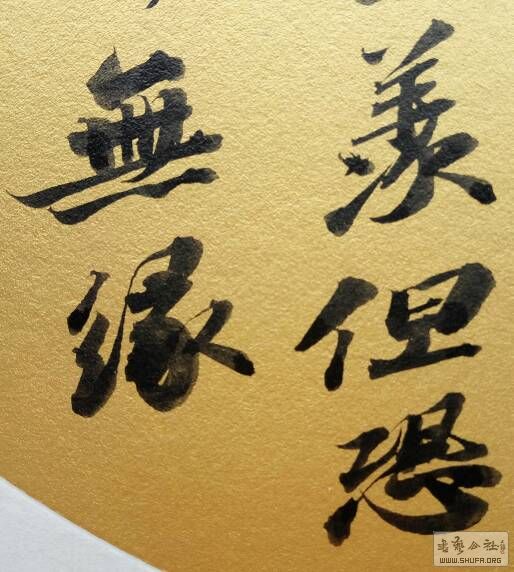 羨但恐
無緣
書藝公社
WWW.SHUFA.ORG